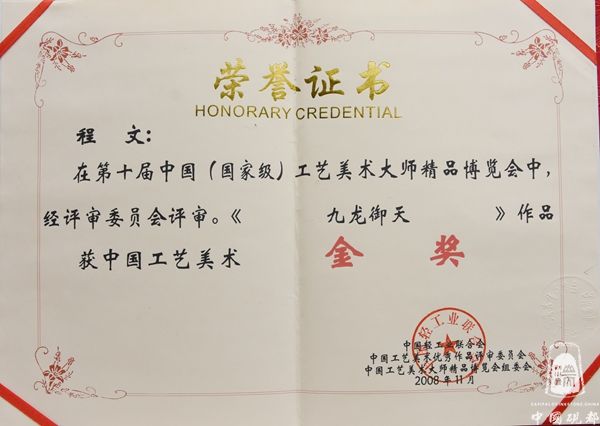 荣誉证书
HONORARY CREDENTIAL
程 文：
在第十届中国（国家级）工艺美术大师精品博览会中，
经评审委员会评审。《 九龙御天 》作品
获中国工艺美术 金 奖
中国轻工业联合会
中国工艺美术优秀作品评审委员会
中国工艺美术大师精品博览会组委会
2008年11月
CAPITAL OF INKSTONE, CHINA
中國硯都